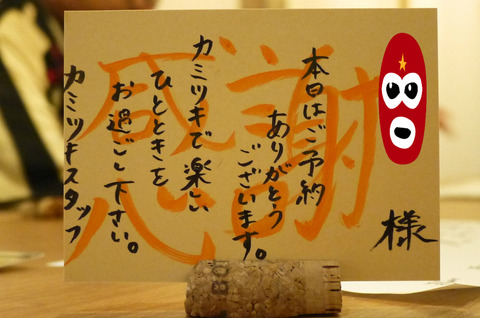 感謝
様
本日はご予約
ありがとう
ございます。
カミツキで楽しい
ひとときを
お過ごし下さい。
カミツキスタッフ
BO